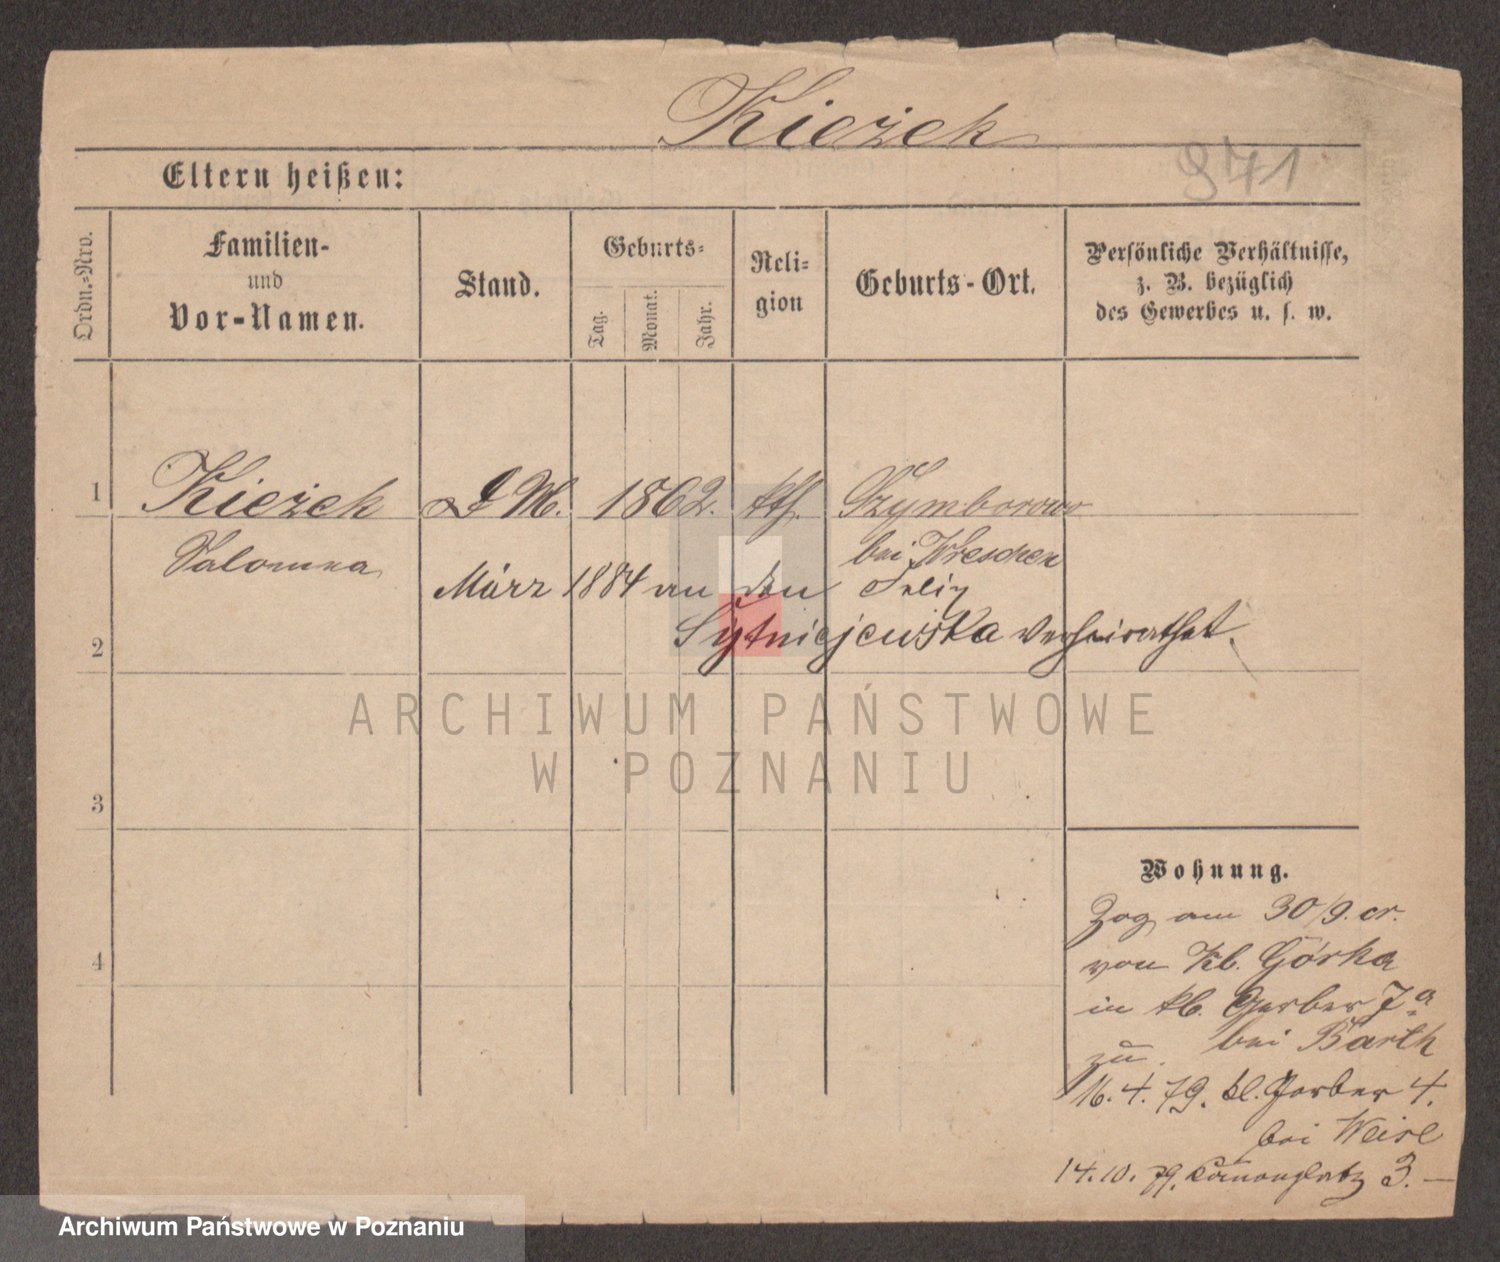 Kieżek
971
Eltern heißen:
Ordn.-Nro.
Familien-
und
Vor-Namen.
Stand.
Geburts-
Tag.
Monat.
Jahr.
Reli-
gion
Geburts-Ort.
Persönliche Verhältnisse,
z. B. bezüglich
des Gewerbes u. s. w.
1
Kieżek
D M.
1862.
kth.
Szymborowo
Salomea
bei Wreschen
März 1884 an den Felix
2
Sytniejewska verheirathet.
ARCHIWUM PAŃSTWOWE
W POZNANIU
3
Wohnung.
Zog am 30/9. cr.
4
von Kl. Górka
in kl. Gerber 7a
zu. bei Barth
16.4.79. kl. Gerber 4.
bei Weise
14.10.79. 3.
Archiwum Państwowe w Poznaniu